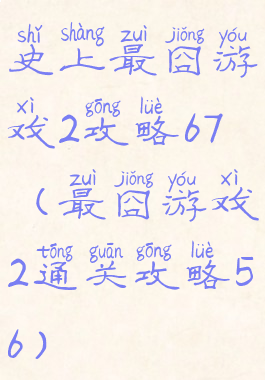 shǐ shàng zuì jiǒng yóu
史上最囧游
xì gōng lüè
戏2攻略67
zuì jiǒng yóu xì
(最囧游戏
tōng guān gōng lüè
2通关攻略5
6)